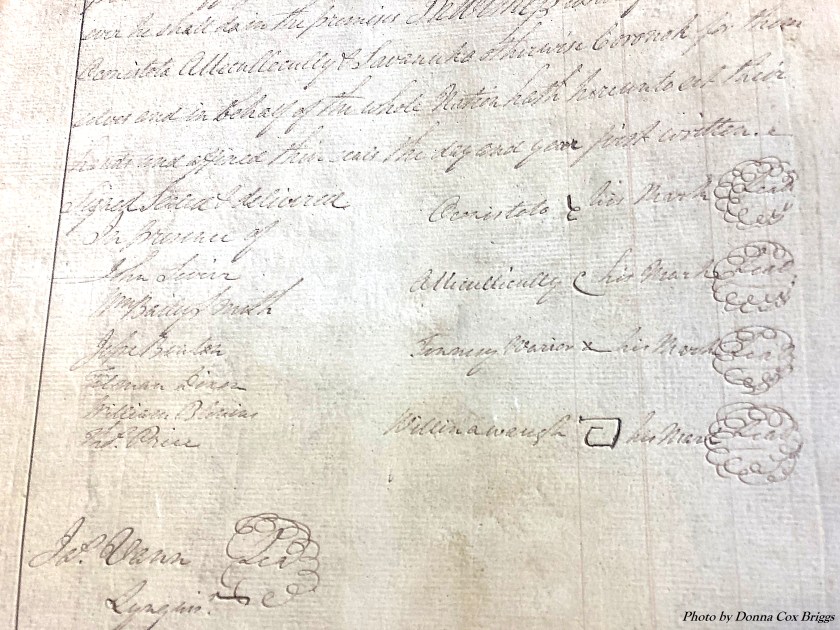 ever he shall do in the premises In Witness
Oconistoto Attecullecully & Savanuka otherwise Coronok for them
selves and in behalf of the whole Nation hath hereunto set their
hands and affixed their seals the day and year first written.
Signed Sealed & delivered
In presence of
John Sevier
Wm Baily Smith
Jesse Benton
Tilman Dixon
William Blevins
Thos. Price
Oconistoto his Mark Seal
Attecullecully his Mark Seal
Tennesy Warior x his Mark Seal
Willinawaugh his Mark Seal
Jos. Vann Seal
Lynguist
Photo by Donna Cox Briggs